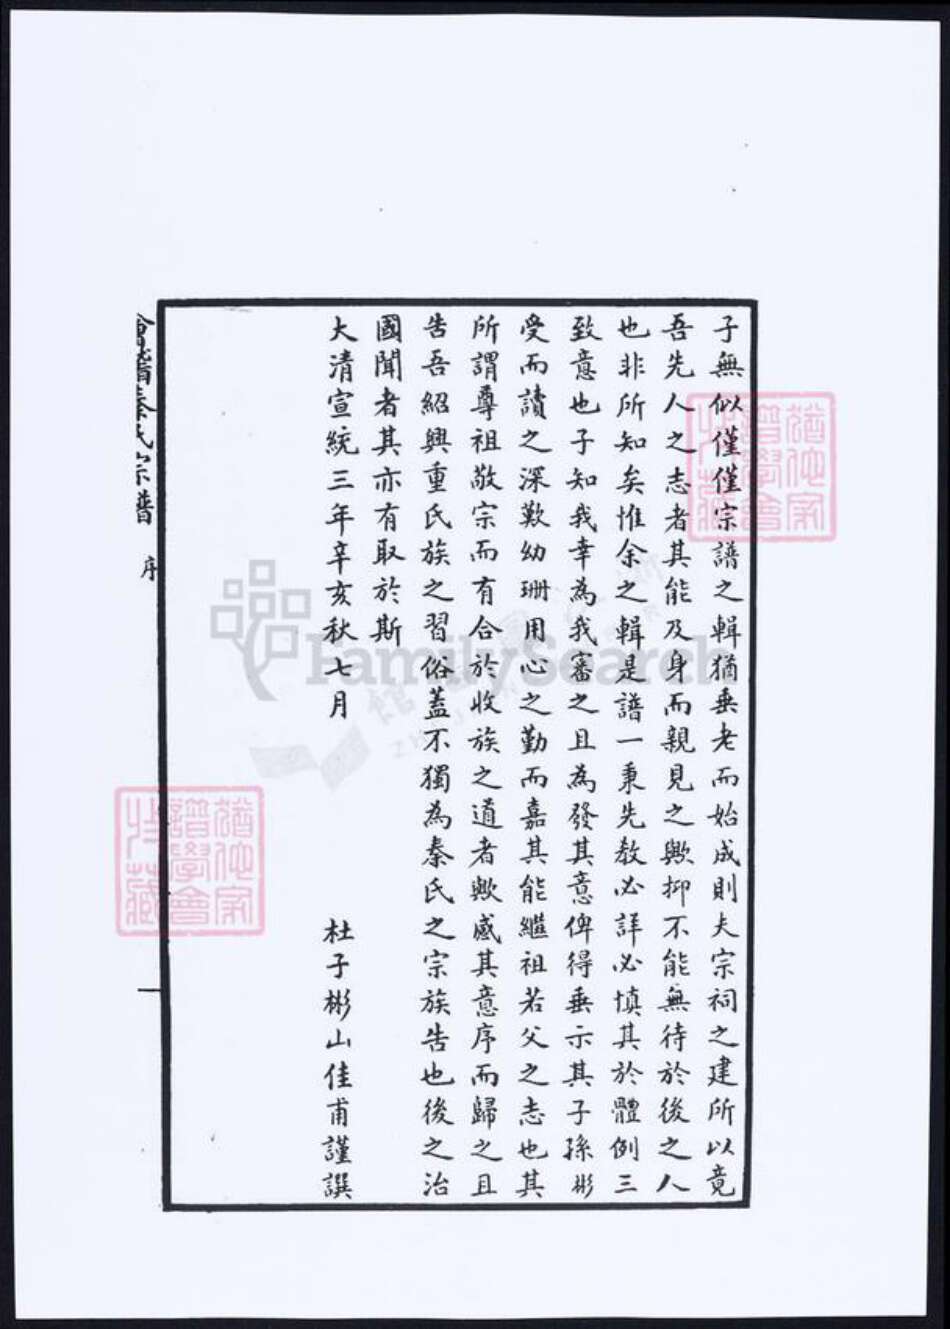 子無似僅僅宗譜之輯猶垂老而始成則夫宗祠之建所以竟
吾先人之志者其能及身而親見之歟抑不能無待於後之人
也非所知矣惟余之輯是譜一秉先教必詳必慎其於體例三
致意也子知我幸為我審之且為發其意俾得垂示其子孫彬
受而讀之深歎幼珊用心之勤而嘉其能繼祖若父之志也其
所謂尊祖敬宗而有合於收族之道者歟感其意序而歸之且
告吾紹興重氏族之習俗蓋不獨為秦氏之宗族告也後之治
國聞者其亦有取於斯
大清宣統三年辛亥秋七月
杜子彬山佳甫謹譔
會稽秦氏宗譜 序 一
FamilySearch